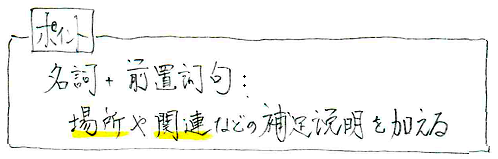 ポイント
名詞 + 前置詞句:
場所や関連などの補足説明を加える